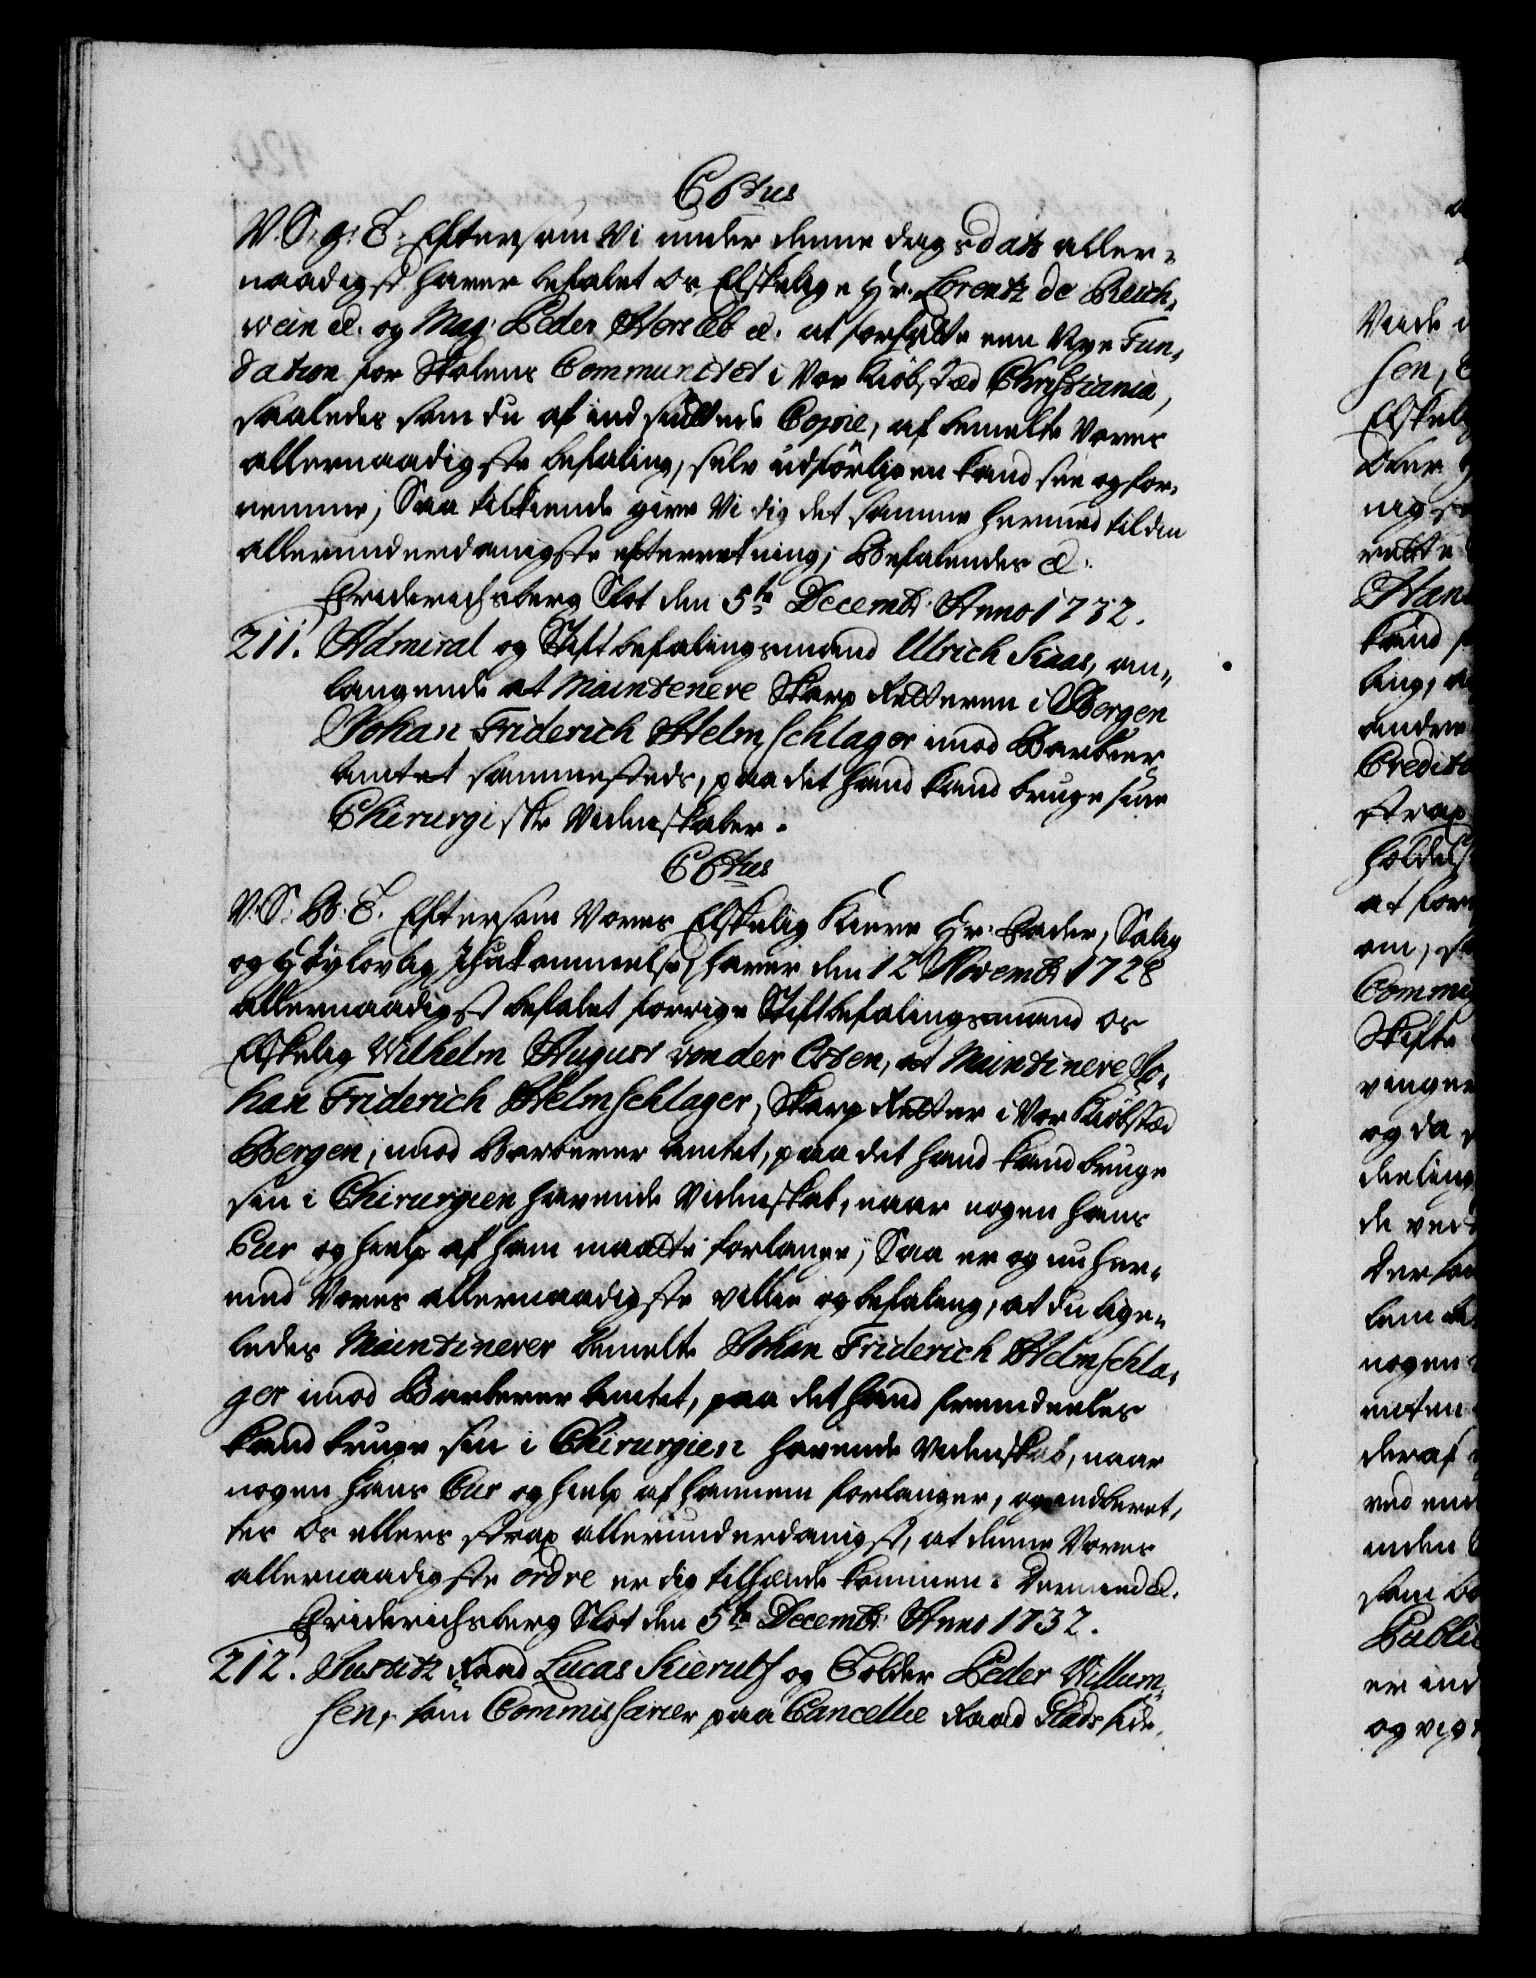 C6tus
V. S. g: T: Eftersom Vi under denne dags dato aller-
naadigst haver befalet os Elskelige Hr. Lorentz de Reich-
wein &. og Mag: Peder Hersleb &. at forfatte een Nye Fun-
dation for Skolens Communitet i Vor Kiøbstæd Christiania,
saaledes som du af indsluttede Copie, af bemelte Vores
allernaadigste befaling, selv udførligen kand see og for-
nemme; Saa tilkiende give Vi dig det samme hermed til din
allerunderdanigste efterretning; Befalendes &.
Friderichsberg Slot den 5te Decembr: Anno 1732.
211. Admiral og Stiftbefalingsmand Ulrich Kaas, an-
langende at Maintenere Skarp Retteren i Bergen
Johan Friderich Helmschlager imod Barbeer
Amtet sammesteds, paa det hand kand bruge sine
Chirurgiske Videnskaber.
C6tus
V. S. B. T. Eftersom Vores Elskelig Kiere Hr. Fader, Salig
og Høylovlig Ihukommelse, haver den 12 Novembr 1728
allernaadigst befalet forrige Stiftbefalingsmand os
Elskelig Wilhelm August von der Osten, at Maintinere Jo-
han Friderich Helmschlager, Skarp Retter i Vor Kiøbstæd
Bergen, imod Barberer Amtet, paa det hand kand bruge
sin i Chirurgien havende Videnskab, naar nogen hans
Cur og hielp af ham maatte forlange; Saa er og nu her-
med Vores allernaadigste villie og befaling, at du lige-
ledes Maintinerer bemelte Johan Friderich Helmschla-
ger imod Barberer Amtet, paa det hand fremdeeles
kand bruge sin i Chirurgien havende Videnskab, naar
nogen hans Cur og hielp af hannem forlanger, og indberet-
ter os ellers strax allerunderdanigst, at denne Vores
allernaadigste ordre er dig tilhænde kommen. Dermed &.
Friderichsberg Slot den 5te Decembr: Anno 1732.
212. Justitz Raad Lucas Kierulf og Tolder Peder Willum-
sen, som Commissarier paa Cancellie Raad Stads side,